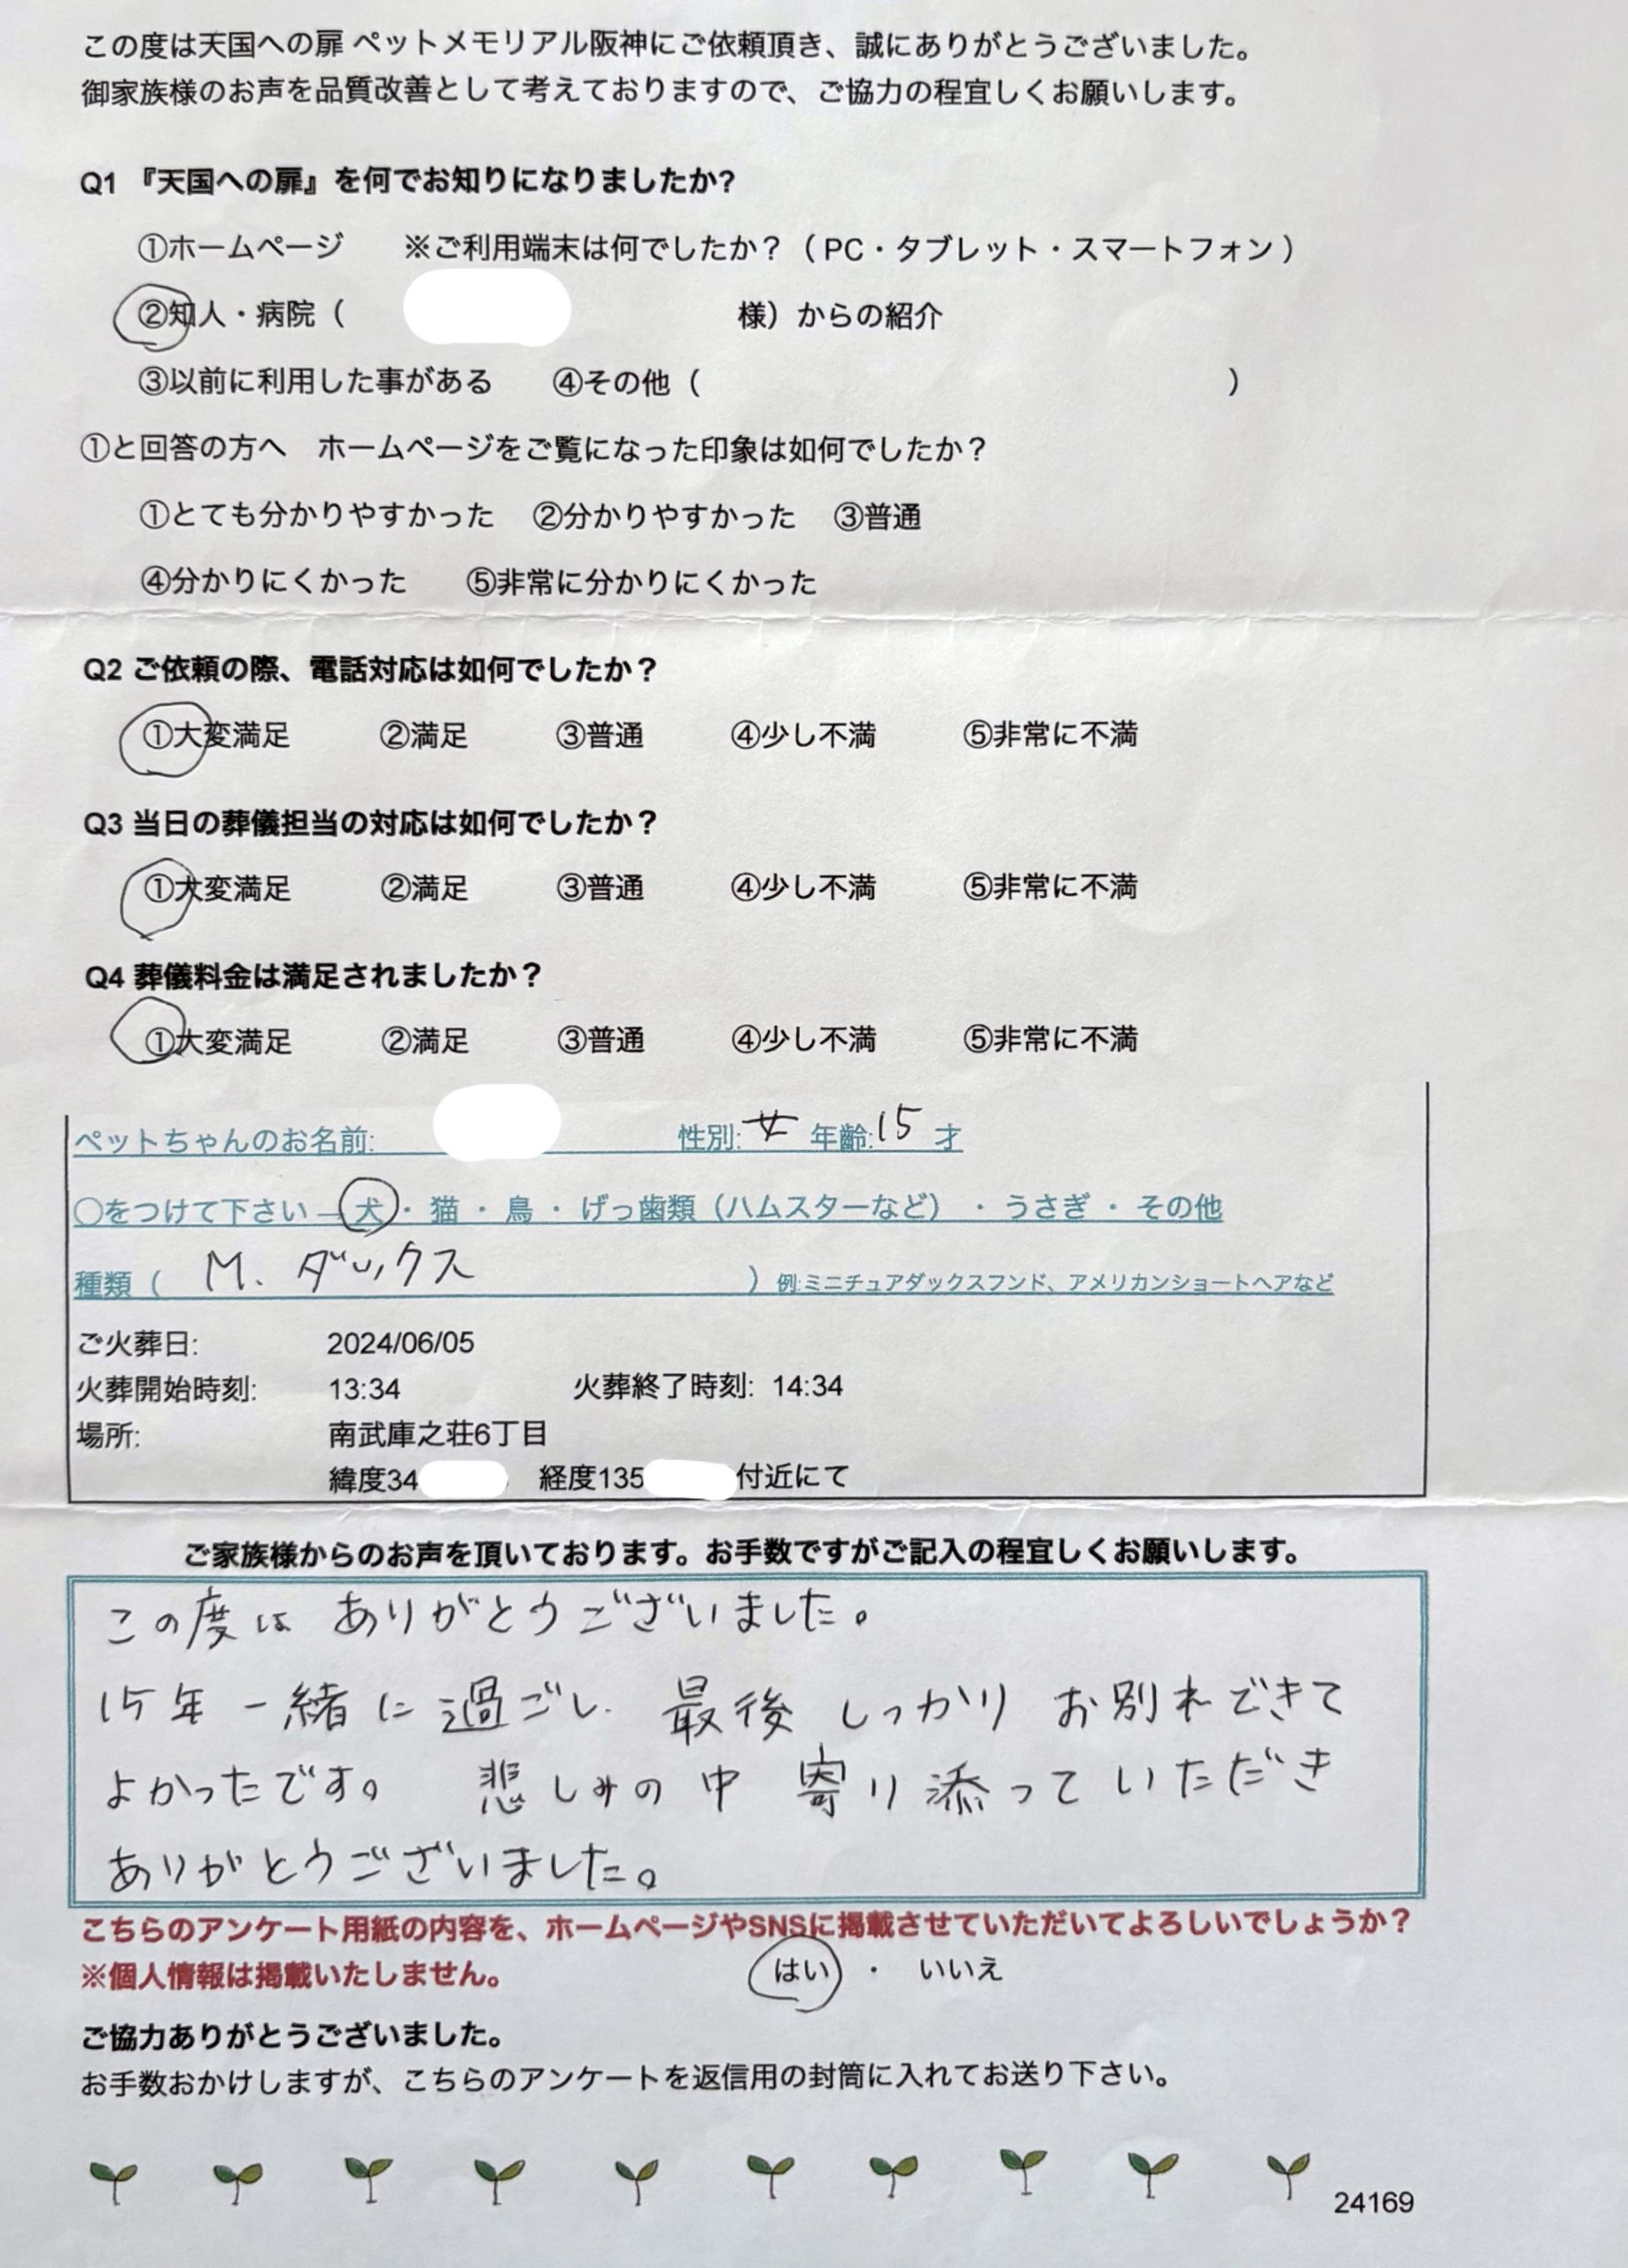 この度は天国への扉 ペットメモリアル阪神にご依頼頂き、誠にありがとうございました。
御家族様のお声を品質改善として考えておりますので、ご協力の程宜しくお願いします。
Q1 『天国への扉』を何でお知りになりましたか?
①ホームページ ※ご利用端末は何でしたか？（ PC・タブレット・スマートフォン ）
②知人・病院（ 様）からの紹介
③以前に利用した事がある ④その他（ ）
①と回答の方へ ホームページをご覧になった印象は如何でしたか？
①とても分かりやすかった ②分かりやすかった ③普通
④分かりにくかった ⑤非常に分かりにくかった
Q2 ご依頼の際、電話対応は如何でしたか？
①大変満足 ②満足 ③普通 ④少し不満 ⑤非常に不満
Q3 当日の葬儀担当の対応は如何でしたか？
①大変満足 ②満足 ③普通 ④少し不満 ⑤非常に不満
Q4 葬儀料金は満足されましたか？
①大変満足 ②満足 ③普通 ④少し不満 ⑤非常に不満
ペットちゃんのお名前: 性別: 女 年齢: 15 才
○をつけて下さい→ 犬・猫・鳥・げっ歯類（ハムスターなど）・うさぎ・その他
種類（ M. ダックス ）例:ミニチュアダックスフンド、アメリカンショートヘアなど
ご火葬日: 2024/06/05
火葬開始時刻: 13:34 火葬終了時刻: 14:34
場所: 南武庫之荘6丁目
緯度34 経度135 付近にて
ご家族様からのお声を頂いております。お手数ですがご記入の程宜しくお願いします。
この度は ありがとうございました。
15年 一緒に過ごし、最後 しっかり お別れできて
よかったです。 悲しみの中 寄り添って いただき
ありがとうございました。
こちらのアンケート用紙の内容を、ホームページやSNSに掲載させていただいてよろしいでしょうか？
※個人情報は掲載いたしません。 はい ・ いいえ
ご協力ありがとうございました。
お手数おかけしますが、こちらのアンケートを返信用の封筒に入れてお送り下さい。
24169